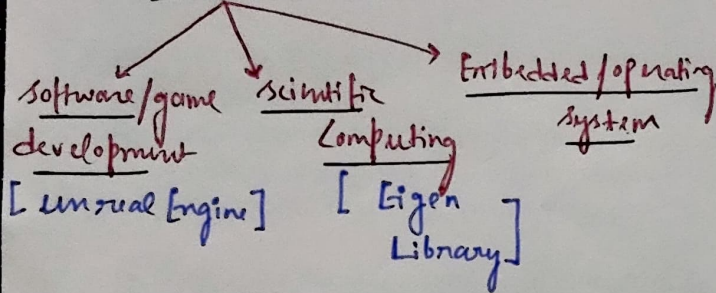 software/game
development
[unreal Engine]
scientific
Computing
[Eigen
Library]
Embedded/operating
system